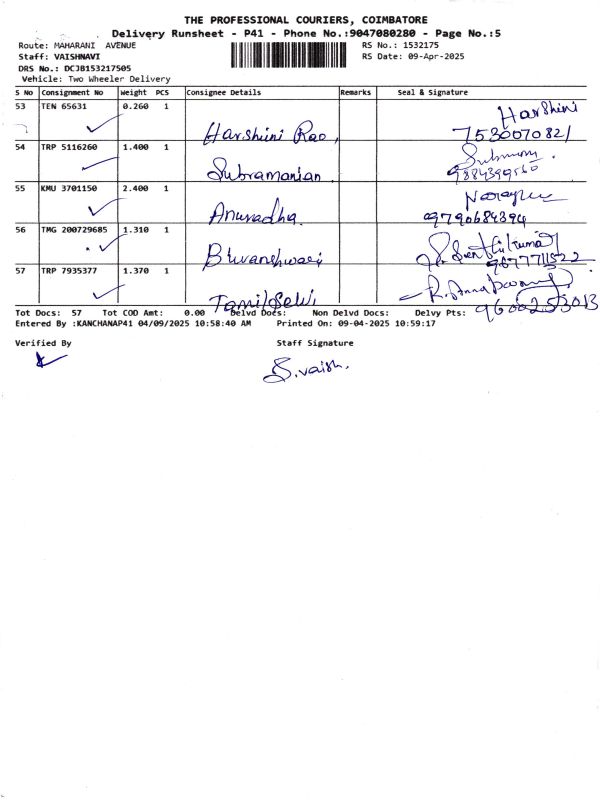 THE PROFESSIONAL COURIERS, COIMBATORE
Delivery Runsheet - P41 - Phone No.:9047080280 - Page No.:5
Route: MAHARANI AVENUE RS No.: 1532175
Staff: VAISHNAVI RS Date: 09-Apr-2025
DRS No.: DCJB153217505
Vehicle: Two Wheeler Delivery
S No Consignment No Weight PCS Consignee Details Remarks Seal & Signature
53 TEN 65631 0.260 1 Harshini
Harshini Rao, 7530070821
54 TRP 5116260 1.400 1
Subramanian
55 KMU 3701150 2.400 1
Anuradha. 9790684394
56 TMG 200729685 1.310 1
57 TRP 7935377 1.370 1
Tamil Selvi 9600253013
Tot Docs: 57 Tot COD Amt: 0.00 Delvd Docs: Non Delvd Docs: Delvy Pts:
Entered By :KANCHANAP41 04/09/2025 10:58:40 AM Printed On: 09-04-2025 10:59:17
Verified By Staff Signature
S.vaish.